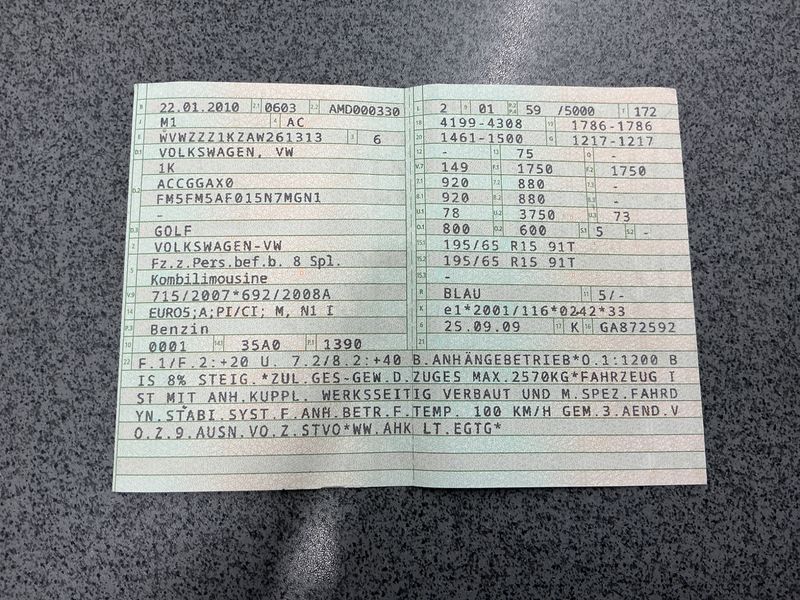 B 22.01.2010 2.1 0603 2.2 AMD000330
J M1 4 AC
E WVWZZZ1KZAW261313 3 6
D.1 VOLKSWAGEN, VW
1K
D.2 ACCGGAX0
FM5FM5AF015N7MGN1
-
D.3 GOLF
2 VOLKSWAGEN-VW
5 Fz.z.Pers.bef.b. 8 Spl.
Kombilimousine
V.9 715/2007*692/2008A
14 EURO5;A;PI/CI; M, N1 I
P.3 Benzin
10 0001 14.1 35A0 P.1 1390
L 2 9 01 P.2 P.4 59 /5000 T 172
18 4199-4308 19 1786-1786
20 1461-1500 G 1217-1217
12 - 13 75 Q -
V.7 149 F.1 1750 F.2 1750
7.1 920 7.2 880 7.3 -
8.1 920 8.2 880 8.3 -
U.1 78 U.2 3750 U.3 73
O.1 800 O.2 600 S.1 5 S.2 -
15.1 195/65 R15 91T
15.2 195/65 R15 91T
15.3 -
R BLAU 11 5/-
K e1*2001/116*0242*33
6 25.09.09 17 K 16 GA872592
21
22 F.1/F.2:+20 U. 7.2/8.2:+40 B.ANHÄNGEBETRIEB*O.1:1200 B
IS 8% STEIG.*ZUL.GES-GEW.D.ZUGES MAX.2570KG*FAHRZEUG I
ST MIT ANH.KUPPL. WERKSSEITIG VERBAUT UND M.SPEZ.FAHRD
YN.STABI.SYST.F.ANH.BETR.F.TEMP. 100 KM/H GEM.3.AEND.V
O.Z.9.AUSN.VO.Z.STVO*WW.AHK LT.EGTG*